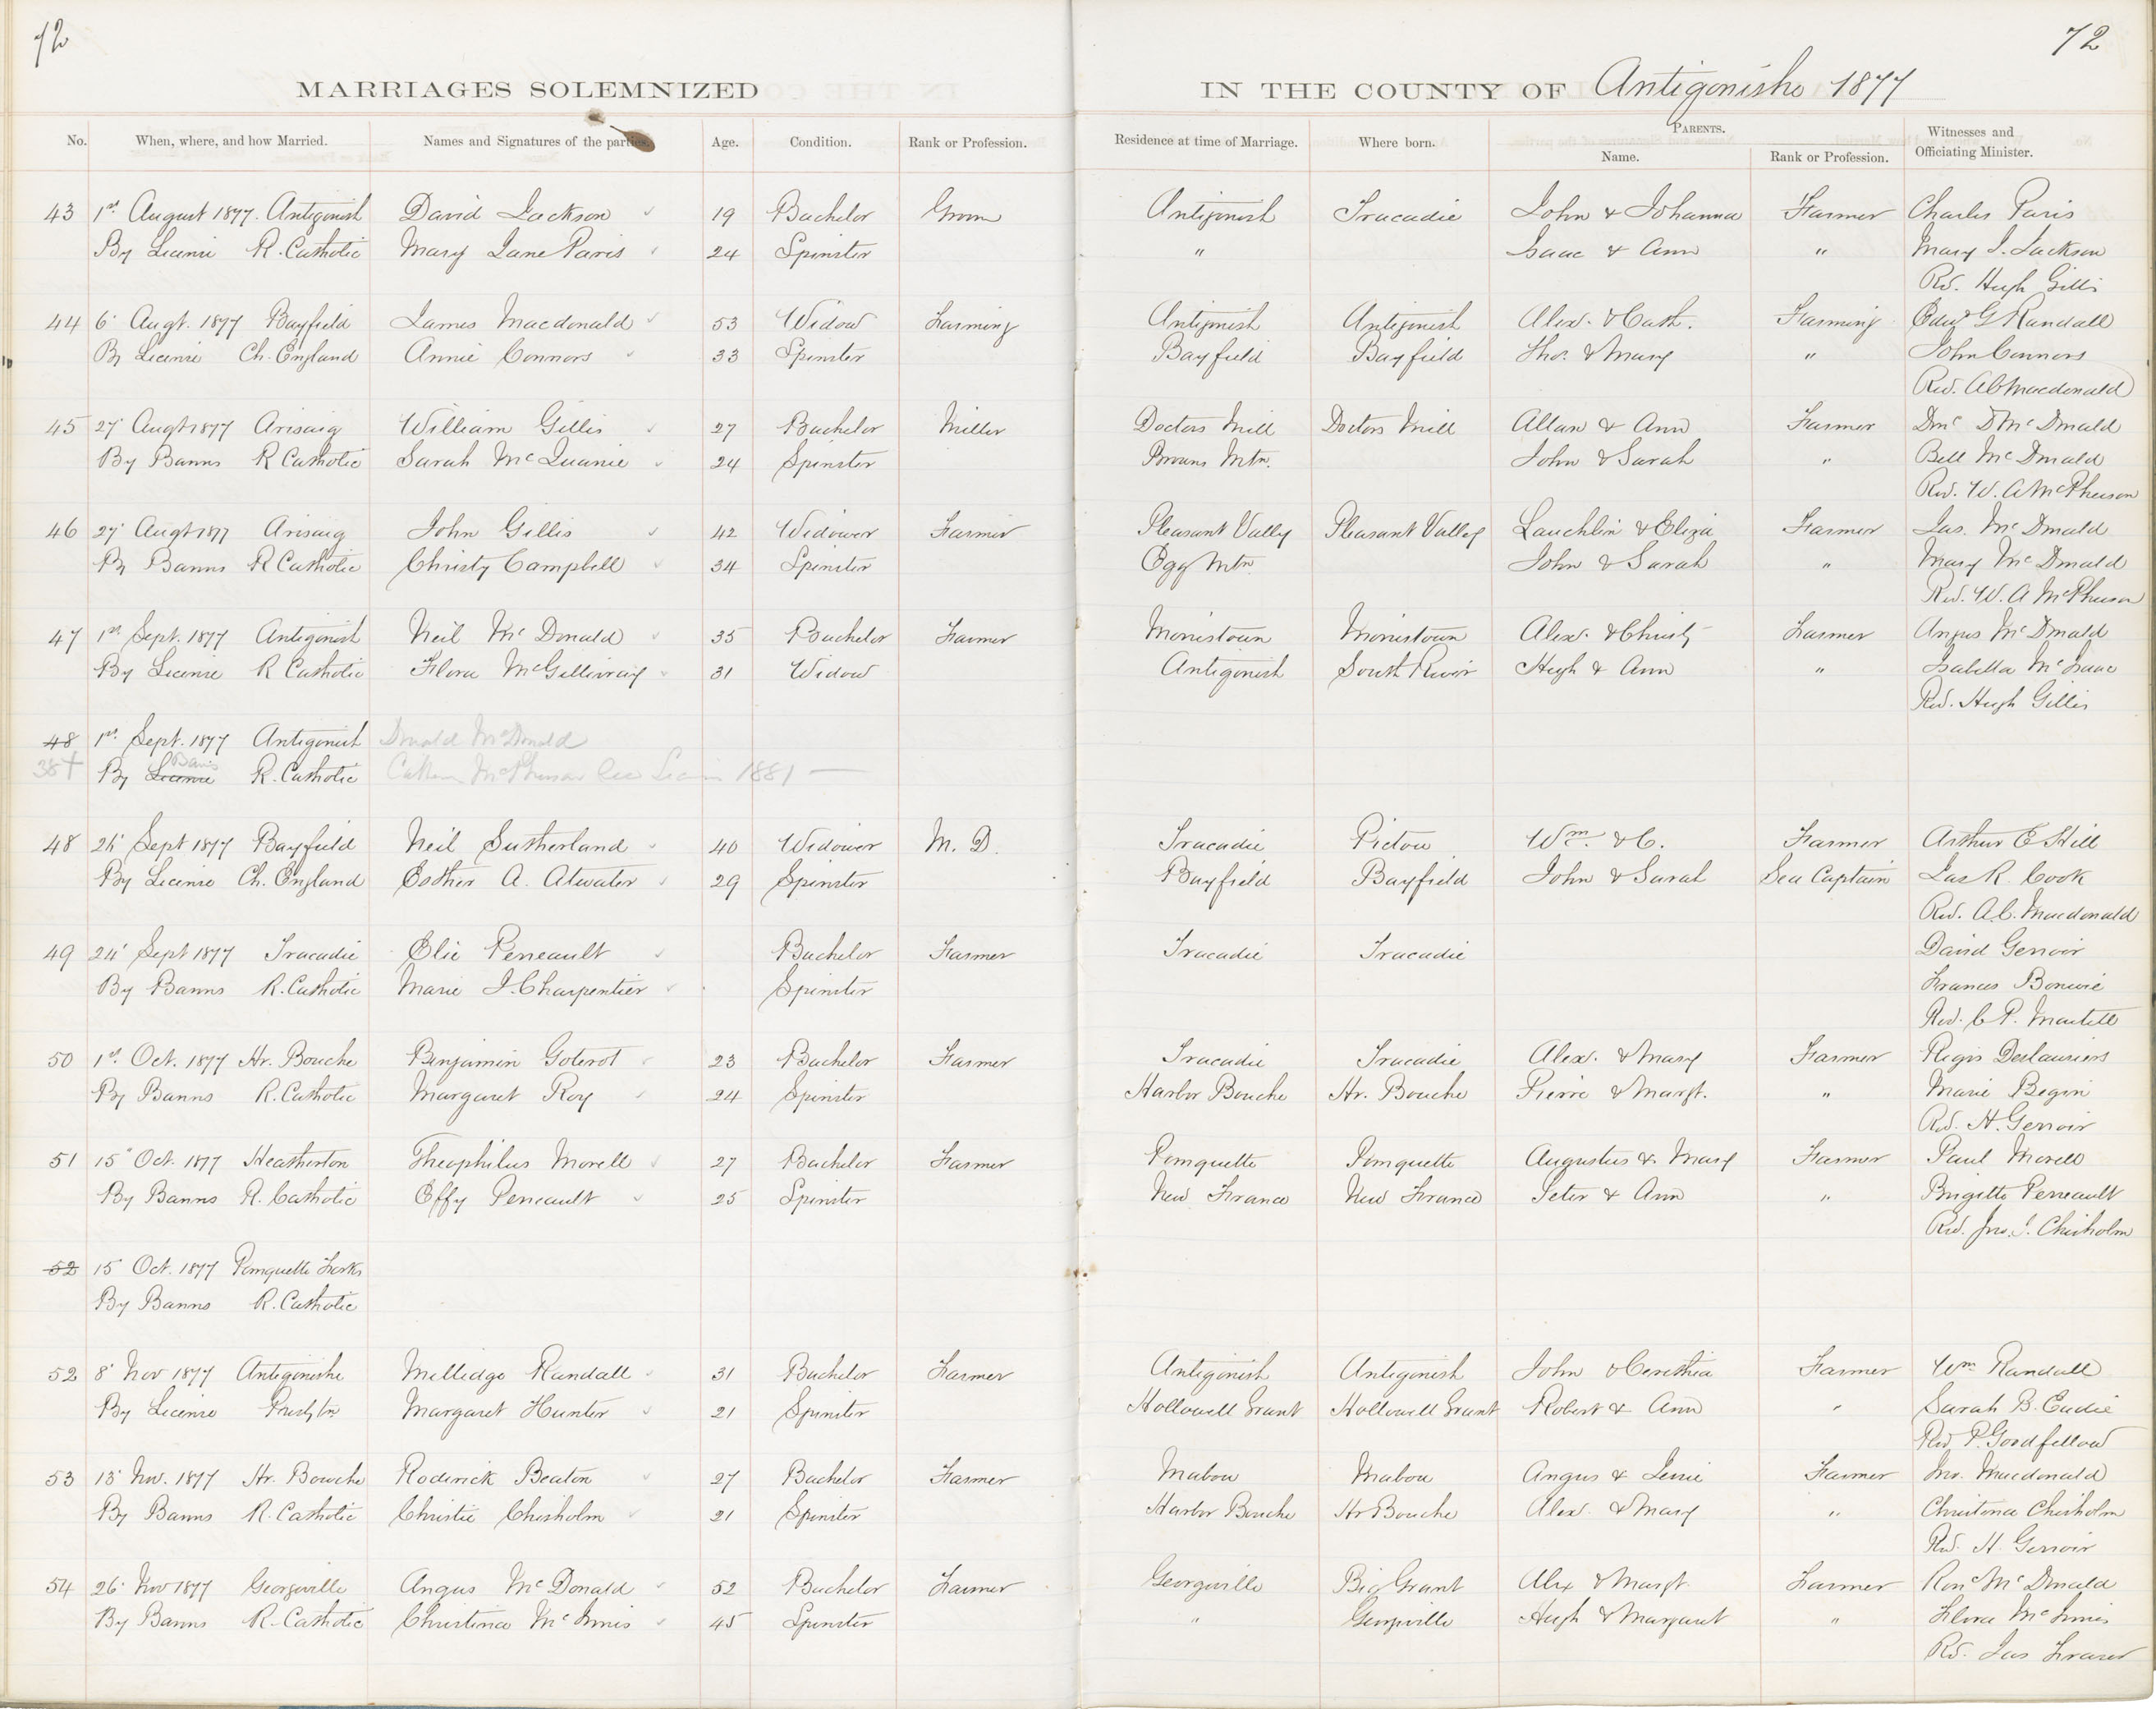 72
72
MARRIAGES SOLEMNIZED
IN THE COUNTY OF Antigonishe 1877
No. When, where, and how Married. Names and Signatures of the parties. Age. Condition. Rank or Profession. Residence at time of Marriage. Where born. PARENTS. Name. Rank or Profession. Witnesses and Officiating Minister.
43 1st August 1877. Antigonish David Jackson 19 Bachelor Groom Antigonish Tracadie John & Johanna Farmer Charles Paris
By License R. Catholic Mary Jane Paris 24 Spinster " Isaac & Ann " Mary J. Jackson
Rev. Hugh Gillis
44 6 Augt. 1877 Bayfield James Macdonald 53 Widow Farming Antigonish Antigonish Alex. & Cath. Farming Edwd G Randall
By License Ch. England Annie Connors 33 Spinster Bayfield Bayfield Tho. & Mary " John Connors
Rev. A C Macdonald
45 27 Augt 1877 Arisaig William Gillis 27 Bachelor Miller Doctors Mill Doctors Mill Allan & Ann Farmer D McDonald
By Banns R Catholic Sarah McQuanie 24 Spinster Browns Mtn. John & Sarah " Bell McDonald
Rev. W. A McPherson
46 27 Augt 1877 Arisaig John Gillis 42 Widower Farmer Pleasant Valley Pleasant Valley Lauchlin & Eliza Farmer Jas. McDonald
By Banns R Catholic Christy Campbell 34 Spinster Egg Mtn John & Sarah " Mary McDonald
Rev. W. A McPherson
47 1st Sept. 1877 Antigonish Neil McDonald 35 Bachelor Farmer Morristown Morristown Alex. & Christy Farmer Angus McDonald
By License R Catholic Flora McGillivray 31 Widow Antigonish South River Hugh & Ann " Isabella McIsaac
Rev. Hugh Gillis
48 1st Sept. 1877 Antigonish Donald McDonald
38+ By License Banns R. Catholic McPherson 1881
48 Sept 1877 Bayfield Neil Sutherland 40 Widower M. D. Tracadie Pictou Wm. & C. Farmer Arthur E Hill
By License Ch. England Esther A. Atwater 29 Spinster Bayfield Bayfield John & Sarah Sea Captain Jas R. Cook
Rev. A. C. Macdonald
49 24 Sept 1877 Tracadie Elie Perreault Bachelor Farmer Tracadie Tracadie David Gerroir
By Banns R. Catholic Marie J. Charpentier Spinster Frances Bonvie
Rev. C P. Martell
50 1st Oct. 1877 Hr. Bouche Benjamin Goterot 23 Bachelor Farmer Tracadie Tracadie Alex. & Mary Farmer Regis Deslauriers
By Banns R. Catholic Margaret Roy 24 Spinster Harbor Bouche Hr. Bouche Pierre & Margt. " Marie Begin
Rev. H. Gerroir
51 15 Oct. 1877 Heatherton Theophilus Morell 27 Bachelor Farmer Pomquette Pomquette Augustus & Mary Farmer Paul Morell
By Banns R. Catholic Effy Perreault 25 Spinster New France New France Peter & Ann " Brigitte Perreault
Rev. Jno. J. Chisholm
52 15 Oct. 1877 Pomquette Forks
By Banns R. Catholic
52 8 Nov 1877 Antigonishe Millidge Randall 31 Bachelor Farmer Antigonish Antigonish John & Farmer Wm Randall
By License Presbtn Margaret Hunter 21 Spinster Hollowell Grant Hollowell Grant Robert & Ann " Sarah B. Eadie
Rev P. Goodfellow
53 13 Nov. 1877 Hr. Bouche Roderick Beaton 27 Bachelor Farmer Mabou Mabou Angus & Jessie Farmer Jno. Macdonald
By Banns R. Catholic Christie Chisholm 21 Spinster Harbor Bouche Hr Bouche Alex. & Mary " Christina Chisholm
Rev. H Gerroir
54 26 Nov 1877 Georgeville Angus McDonald 52 Bachelor Farmer Georgeville Big Grant Alex & Margt. Farmer Ron McDonald
By Banns R. Catholic Christina McInnis 45 Spinster " Georgeville Hugh & Margaret " Flora McInnis
Rev. Jas Fraser